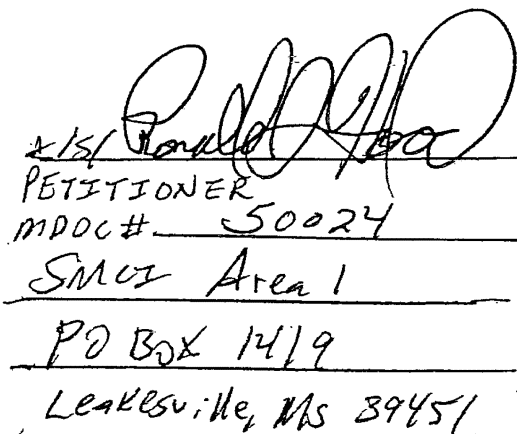 /s/ Ronald
PETITIONER
MDOC# 50024
SMCI Area 1
PO BOX 1419
Leakesville, Ms 39451